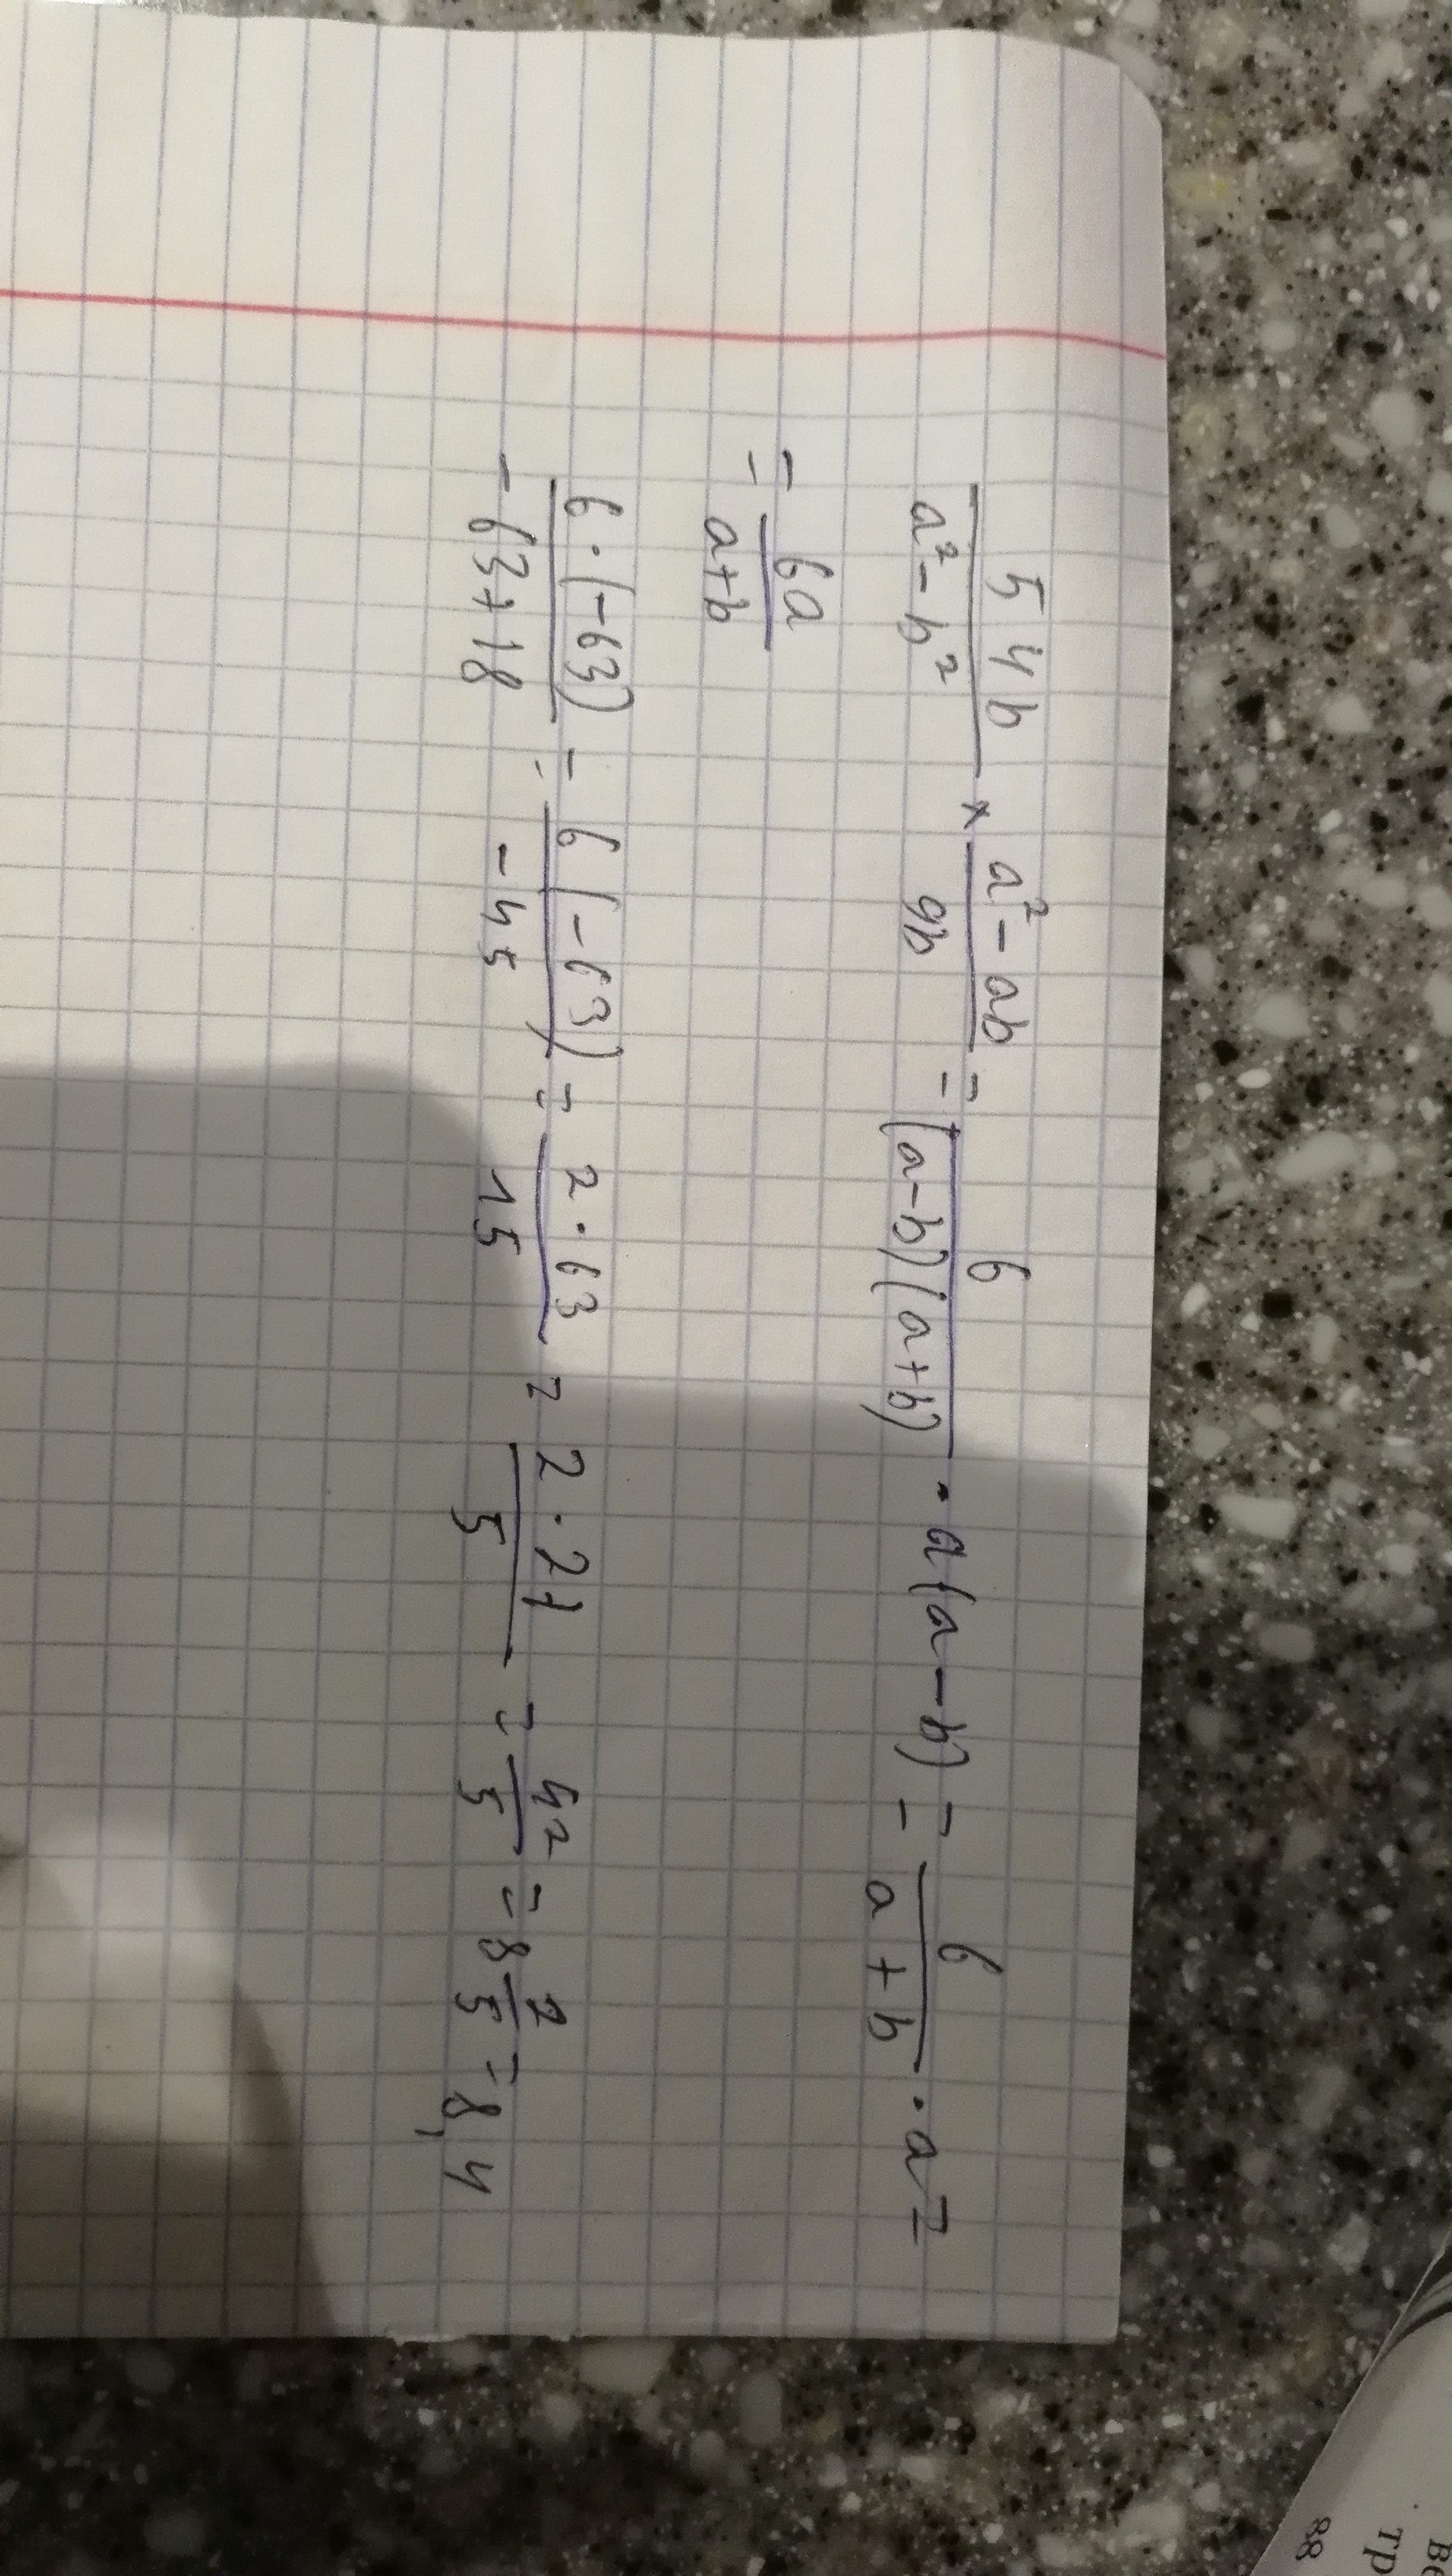 54b/(a²-b²) × (a²-ab)/9b = 6/((a-b)(a+b)) · a(a-b) = 6/(a+b) · a =
= 6a/(a+b)
6·(-63)/(-63+18) = 6(-63)/(-45) = 2·63/15 = 2·21/5 = 42/5 = 8 2/5 = 8,4
88